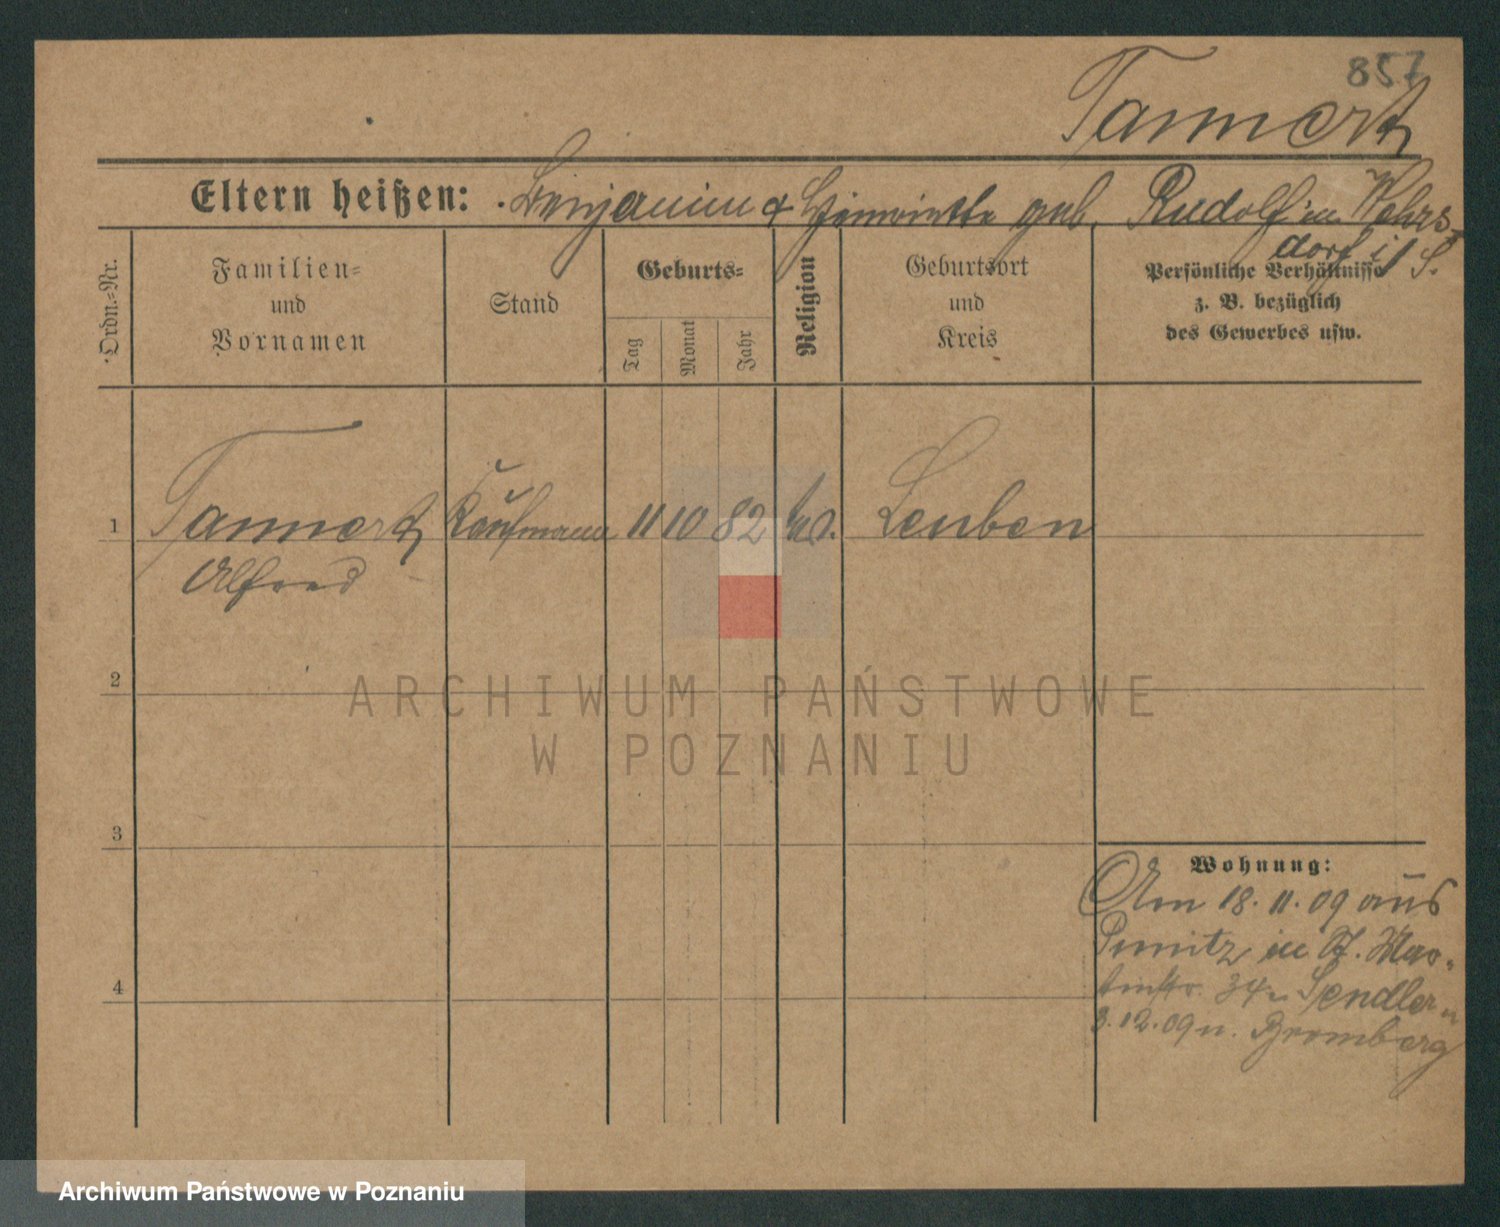 857
Tannert
Eltern heißen: Benjamin & Henriette geb. Rudolf in Wehrs-
dorf i/S.
Ordn.-Nr.
Familien-
und
Vornamen
Stand
Geburts-
Tag
Monat
Jahr
Religion
Geburtsort
und
Kreis
Persönliche Verhältnisse
z. B. bezüglich
des Gewerbes usw.
1 Tannert Kaufmann 11 10 82 ev. Leuben
Alfred
2
ARCHIWUM PAŃSTWOWE
W POZNANIU
3
Wohnung:
Am 18.11.09 aus
Punitz in St. Mar-
tinstr. 34 Sendler
3.12.09 n. Bromberg
4
Archiwum Państwowe w Poznaniu